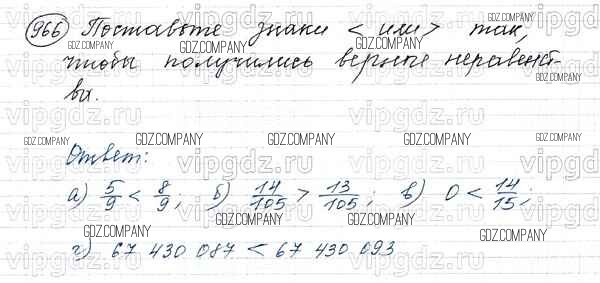 966 Поставьте знаки < или > так,
чтобы получились верные неравенст-
ва.
Ответ:
а) 5/9 < 8/9; б) 14/105 > 13/105; в) 0 < 14/15;
г) 67 430 087 < 67 430 093